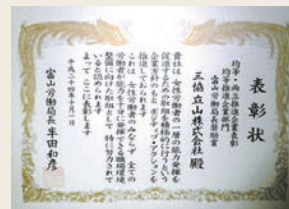 表彰状
均等・両立推進企業表彰
均等推進企業部門
富山労働局長奨励賞
三協立山株式会社殿
貴社は女性労働者の一層の能力発揮を
促進するための取組を積極的に行うという
企業方針のもとポジティブ・アクションを
推進しておられます
これは女性労働者のみならず全ての
労働者が能力を十分に発揮できる職場環境
整備に向けた取組として特に努力されて
いると認められます
よってここに表彰します
平成二十四年十月一日
富山労働局長 半田和彦